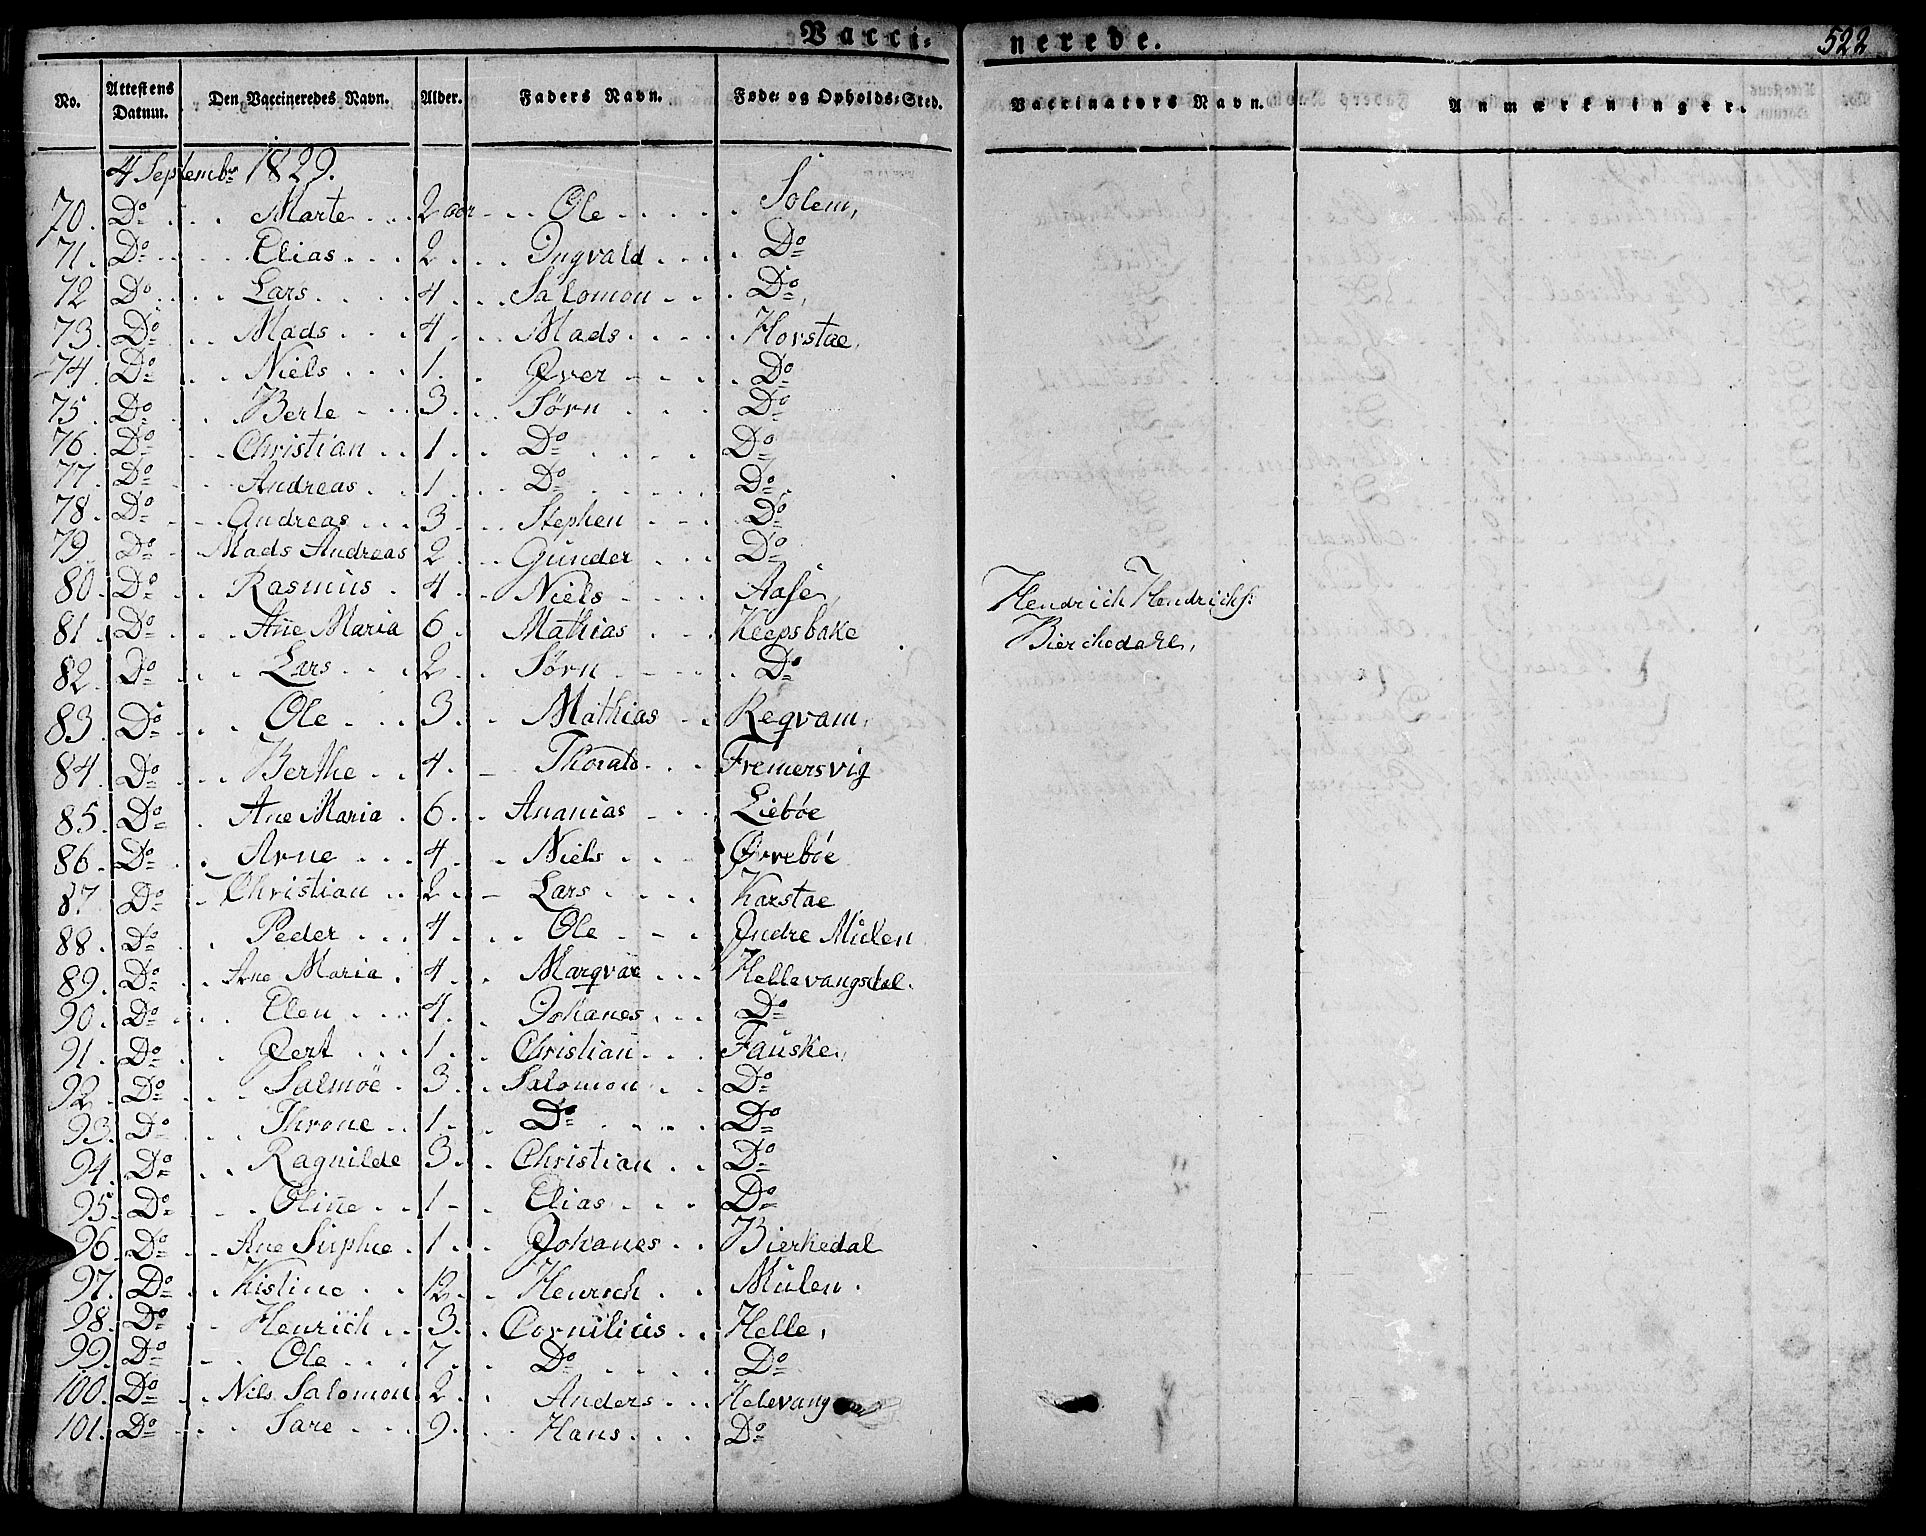 Vacci- nerede. 522
No. Attestens Datum. Den Vaccineredes Navn. Alder. Faders Navn. Føde og Opholds-Sted. Vaccinators Navn. Anmærkninger.
4 Septembr 1829.
70. Do Marte 2 aar Ole Solem,
71. Do Elias 2 Ingvald Do
72 Do Lars 4 Salomon Do,
73. Do Mads 4 Mads Horstae,
74. Do Niels 1 Iver Do
75. Do Berte 3 Sørn Do
76. Do Christian 1 Do Do
77. Do Andreas 1 Do Do
78. Do Andreas 3 Stephen Do
79. Do Mads Andreas 2 Gunder Do
80. Do Rasmus 4 Niels Aase, Hendrich Hendrichs:
81. Do Ane Maria 6 Mathias Keepsbake Bierchedahl,
82. Do Lars 2 Sørn Do
83. Do Ole 3 Mathias Reqvam,
84. Do Berthe 4 Fremersvig
85. Do Ane Maria 6 Ananias Lieböe
86. Do Arne 4 Niels Örreböe
87. Do Christian 2 Lars Karstae
88. Do Peder 4 Ole Indre Mülen
89. Do Ane Maria 4 Marqvar Hellevangsdal.
90. Do Elen 4 Johanes Do
91. Do Gert 1 Christian Fauske,
92. Do Salmöe 3 Salomon Do
93. Do Throne 1 Do Do
94. Do Ragnilde 3 Christian Do
95. Do Oline 1 Elias Do
96. Do Ane Suphie 1 Johanes Bierkedal
97. Do Kistine 12 Henrich Mülen.
98. Do Henrich 3 Cornilius Helle,
99. Do Ole 7 Do Do
100. Do Nils Salomon 2 Anders Helevang
101. Do Sare 9 Hans Do